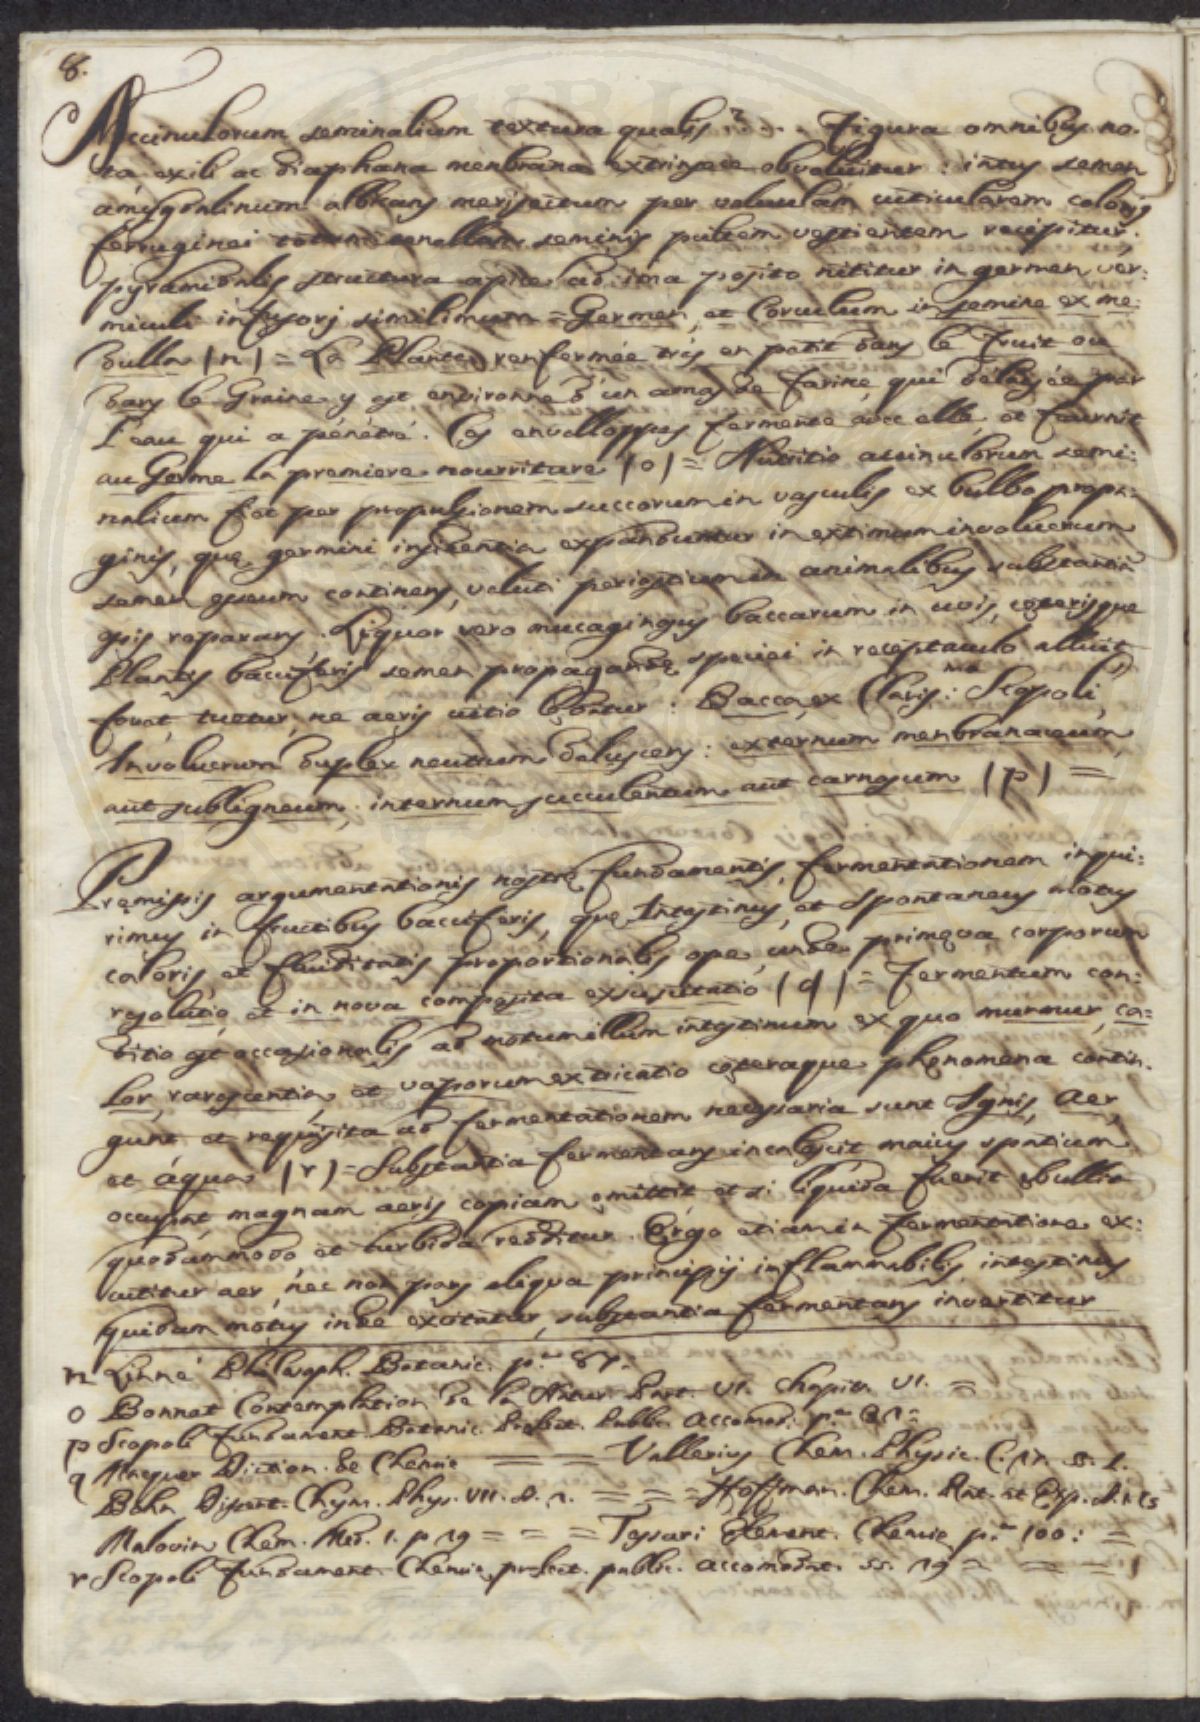 8.
Accinulorum seminalium textura qualis?... Figura omnibus no-
ta exili ac diaphana menbrana extrinsece obvolvitur: intus semen
amÿgdalinum albicans per valvulam cuticularem coloris
ferruginei seminis pulpem vestientem recipitur.
pÿramidalis structura apice ad ima posito nititur in germen ver:
miculi infusorj similimum = Germen, et Corculum in semine ex me:
dulla (n) = La Plante renfermée trés en petit dans le Fruit ou
dans le Graine y est environne d'un amas de farine, qui délayée par
l'eau qui a pénétré. Ces envelloppes fermente avec elle, et fournit
au Germe la premiere nourriture (o) = Nutritio accinulorum semi:
nalium fit per propulsionem succorum in vasculis ex bulbo propa:
ginis, quę germini insidentia expanduntur in extimum involucrum
semen osseum continens, veluti periosticum in animalibus substantia
ossis reparans. Liquor vero mucaginosus baccarum in uvis, cęterisque
Plantis bacciferis semen propagandę speciei in receptaculo alluit,
fovet, tuetur, ne aeris vitio lędatur: Bacca ex Clariss:mo Scopoli,
Involucrum duplex neutrum dehiscens: externum menbranaceum,
aut subligneum, internum succulentum aut carnosum (p) =
Pręmissis argumentationis nostrę fundamentis, fermentationem inqui:
rimus in fructibus bacciferis, quę Intestinus, et Spontaneus Motus
caloris, et fluiditatis proportionalis ope, unde primęva corporum
resolutio, et in nova composita exsuscitatio (q) = Fermentum con:
ditio est occasionalis ad motum illum intestinum ex quo murmur, ca=
lor, rarescentia, et vaporum extricatio cęteraque phęnomena contin:
gunt et requisita ad fermentationem necessaria sunt Ignis, Aer,
et áqua (r) = Substantia fermentans incalescit maius spatium
occupat magnam aeris copiam emittit, et si liquida fuerit ebullit
quodammodo, et turbida redditur. Ergo etiam in fermentatione ex:
cutitur aer, nec non pars aliqua principij inflammabilis, intestinus
quidam motus inde excitatur, substantia fermentans invertitur
n Linné Philosoph. Botanic. p.a 87.
o Bonnet Contemplation de la Natur. Part. VI. Chapitr. VI. =
p Scopoli Fundament. Botanic. Prelect. Public. Accomod.
q Macquer Diction. de Chemie = = Vallerius Chem. Physic. C. 17. §. 1.
Bohn Dissert. Chym. Phys. VII. §. 1. = = = Hoffman. Chem. Rat. et Exp.
Malovin Chem. Med. 1. p 19 = = = Tessari Element. Chemie p.a 100: =
r Scopoli Fundament. Chemię prelect. public. accomodat. §§. 19 = = =